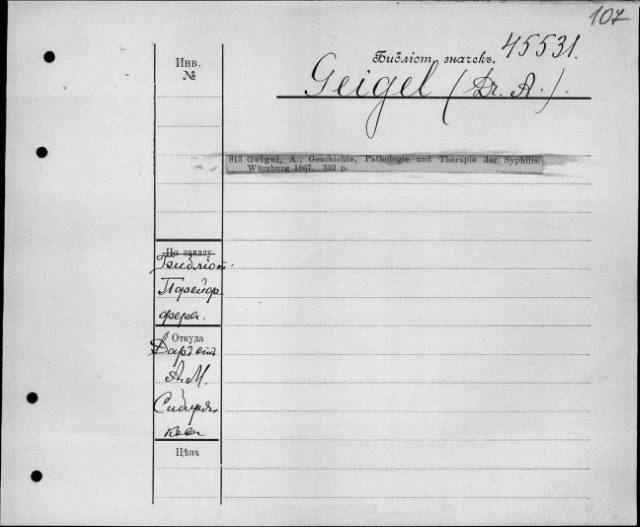 107
Инв.
№
Библіот. значекъ. 45531.
Geigel (Dr. A.).
813 Geigel, A., Geschichte, Pathologie und Therapie der Syphilis.
Würzburg 1867. 332 p.
По заказу
Библіот.
Пфейф
фера.
Откуда
Даръ отъ
А.М.
Сибиря
кова
Цѣна